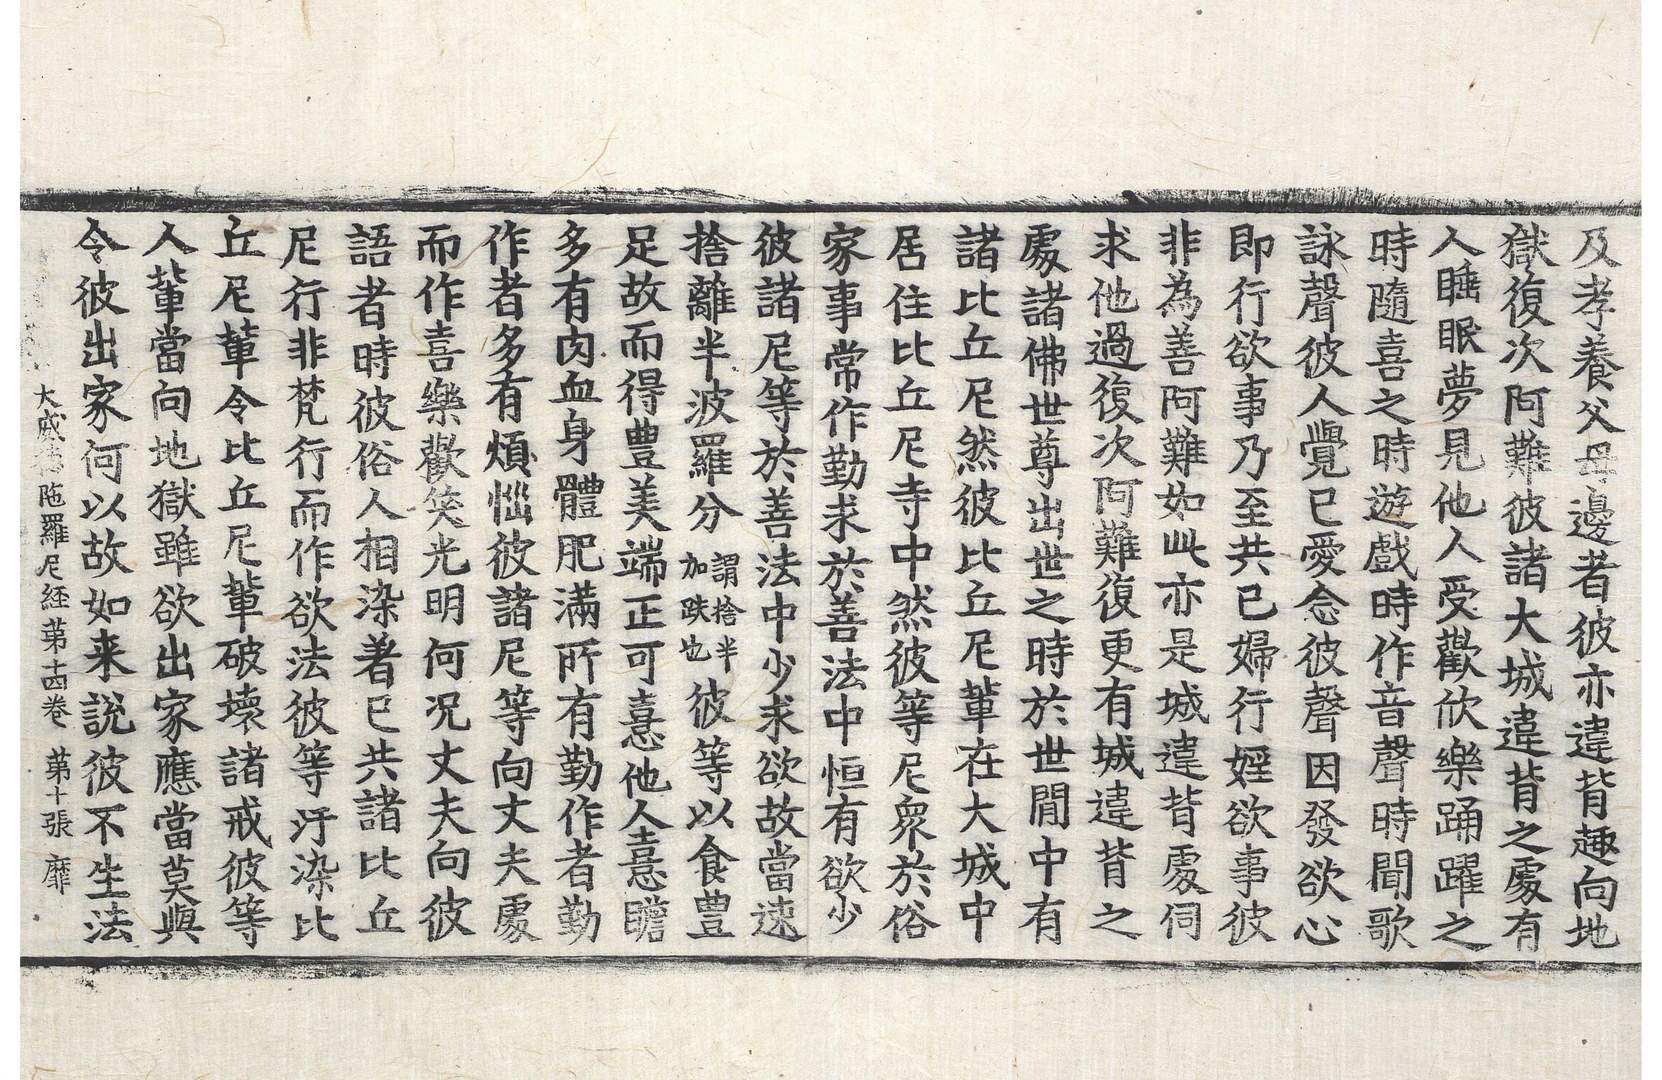 及孝養父母邊者彼亦違背趣向地
獄復次阿難彼諸大城違背之處有
人睡眠夢見他人受歡欣樂踊躍之
時隨喜之時遊戲時作音聲時聞歌
詠聲彼人覺已愛念彼聲因發欲心
即行欲事乃至共已婦行婬欲事彼
非為善阿難如此亦是城違背處伺
求他過復次阿難復更有城違背之
處諸佛世尊出世之時於世閒中有
諸比丘尼然彼比丘尼輩在大城中
居住比丘尼寺中然彼等尼衆於俗
家事常作勤求於善法中恒有欲少
彼諸尼等於善法中少求欲故當速
捨離半波羅分謂捨半加趺也彼等以食豊
足故而得豊美端正可憙他人憙瞻
多有肉血身體肥滿所有勤作者勤
作者多有煩惱彼諸尼等向丈夫處
而作喜樂歡笑光明何况丈夫向彼
語者時彼俗人相染著已共諸比丘
尼行非梵行而作欲法彼等汙染比
丘尼輩令比丘尼輩破壞諸戒彼等
人輩當向地獄雖欲出家應當莫與
令彼出家何以故如来說彼不生法
大威德陁羅尼経第十四卷 第十張 靡